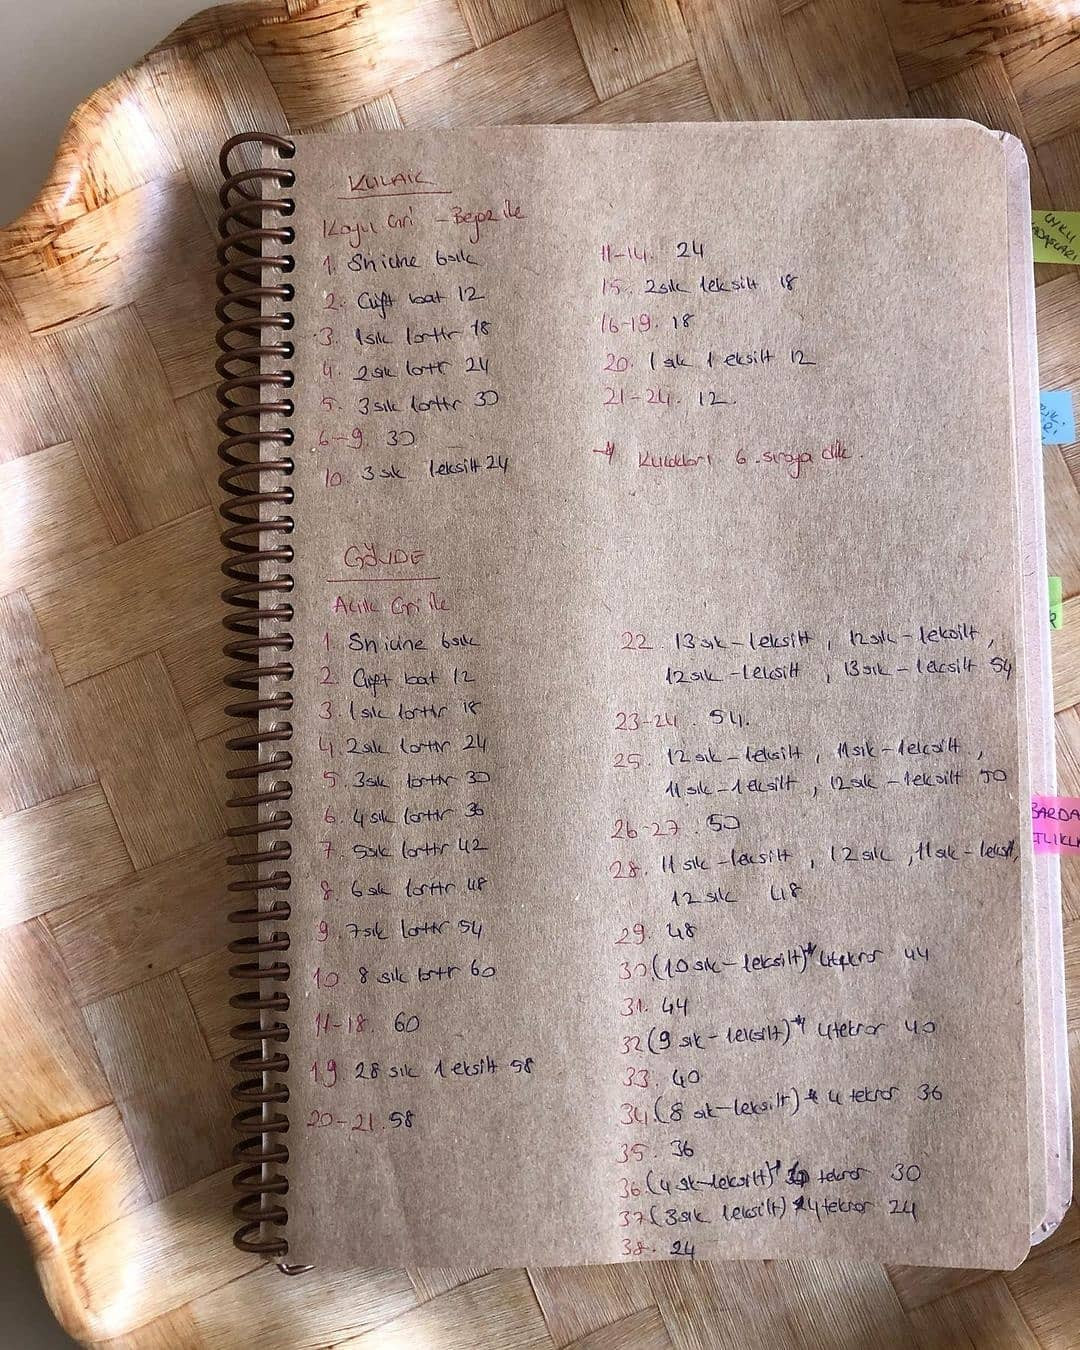 KULAK
Koyu Gri - Beyaz ile
1. Sh içine 6sık
2. Çift bat 12
3. 1sık 1arttr 18
4. 2sık 1arttr 24
5. 3sık 1arttr 30
6-9. 30
10. 3sık 1eksilt 24
11-14. 24
15. 2sık 1eksilt 18
16-19. 18
20. 1sık 1eksilt 12
21-24. 12.
→ Kulakları 6.sıraya dik.
GÖVDE
Açık Gri ile
1. Sh içine 6sık
2. Çift bat 12
3. 1sık 1arttr 18
4. 2sık 1arttr 24
5. 3sık 1arttr 30
6. 4sık 1arttr 36
7. 5sık 1arttr 42
8. 6sık 1arttr 48
9. 7sık 1arttr 54
10. 8 sık 1arttr 60
11-18. 60
19. 28 sık 1eksilt 58
20-21. 58
22. 13sık-1eksilt, 12sık-1eksilt,
12sık-1eksilt, 13sık-1eksilt 54
23-24. 54.
25. 12sık-1eksilt, 11sık-1eksilt,
11sık-1eksilt, 12sık-1eksilt 50
26-27. 50
28. 11 sık-1eksilt, 12sık, 11sık-1eksilt,
12sık 48
29. 48
30(10sık-1eksilt)* 4tekrar 44
31. 44
32(9 sık-1eksilt)* 4tekrar 40
33. 40
34.(8 sık-1eksilt)* 4 tekrar 36
35. 36
36(4sık-1eksilt)* tekrar 30
37(3sık 1eksilt) *4tekrar 24
38. 24
UYKU
BARDA